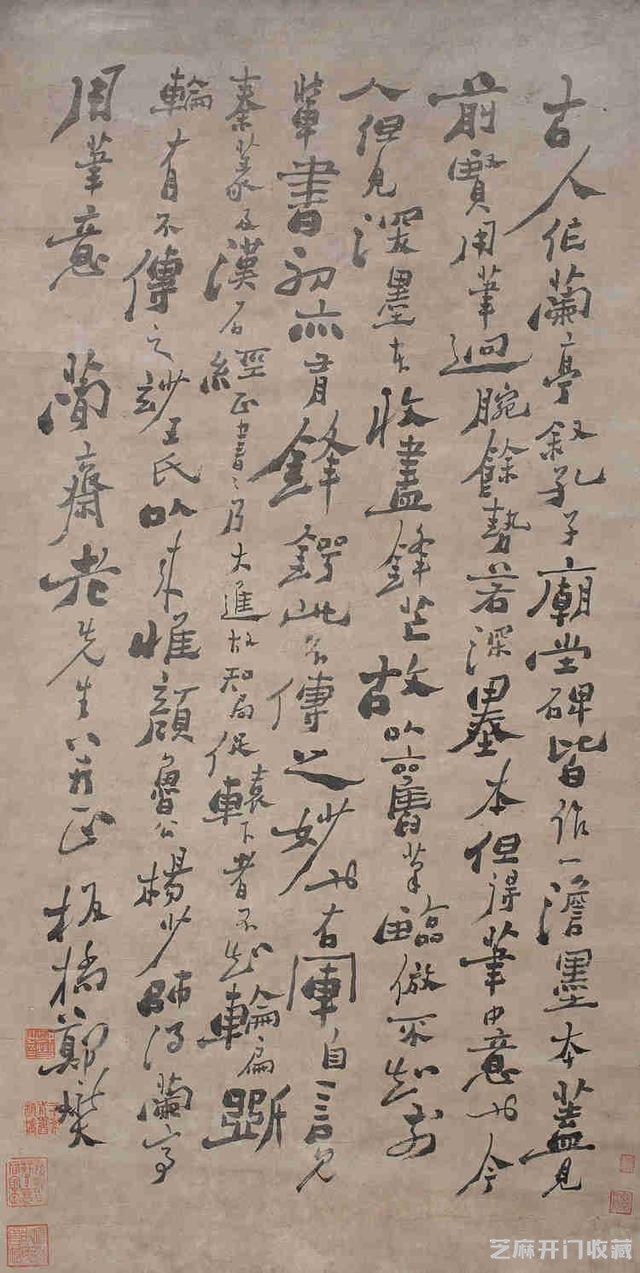 古人作蘭亭敘孔子廟堂碑皆作一澹墨本蓋見
前賢用筆迴腕餘勢若深墨本但得筆中意也今
人但見深墨本收盡鋒芒故以舊筆臨倣不知前
輩書初亦有鋒鍔此不傳之妙也右軍自言見
秦篆及漢石經正書書乃大進故知局促轅下者不知輪扁斲
輪有不傳之妙王氏以來惟顏魯公楊少師得蘭亭
用筆意 蘭齋老先生正 板橋鄭燮
芝麻开门收藏